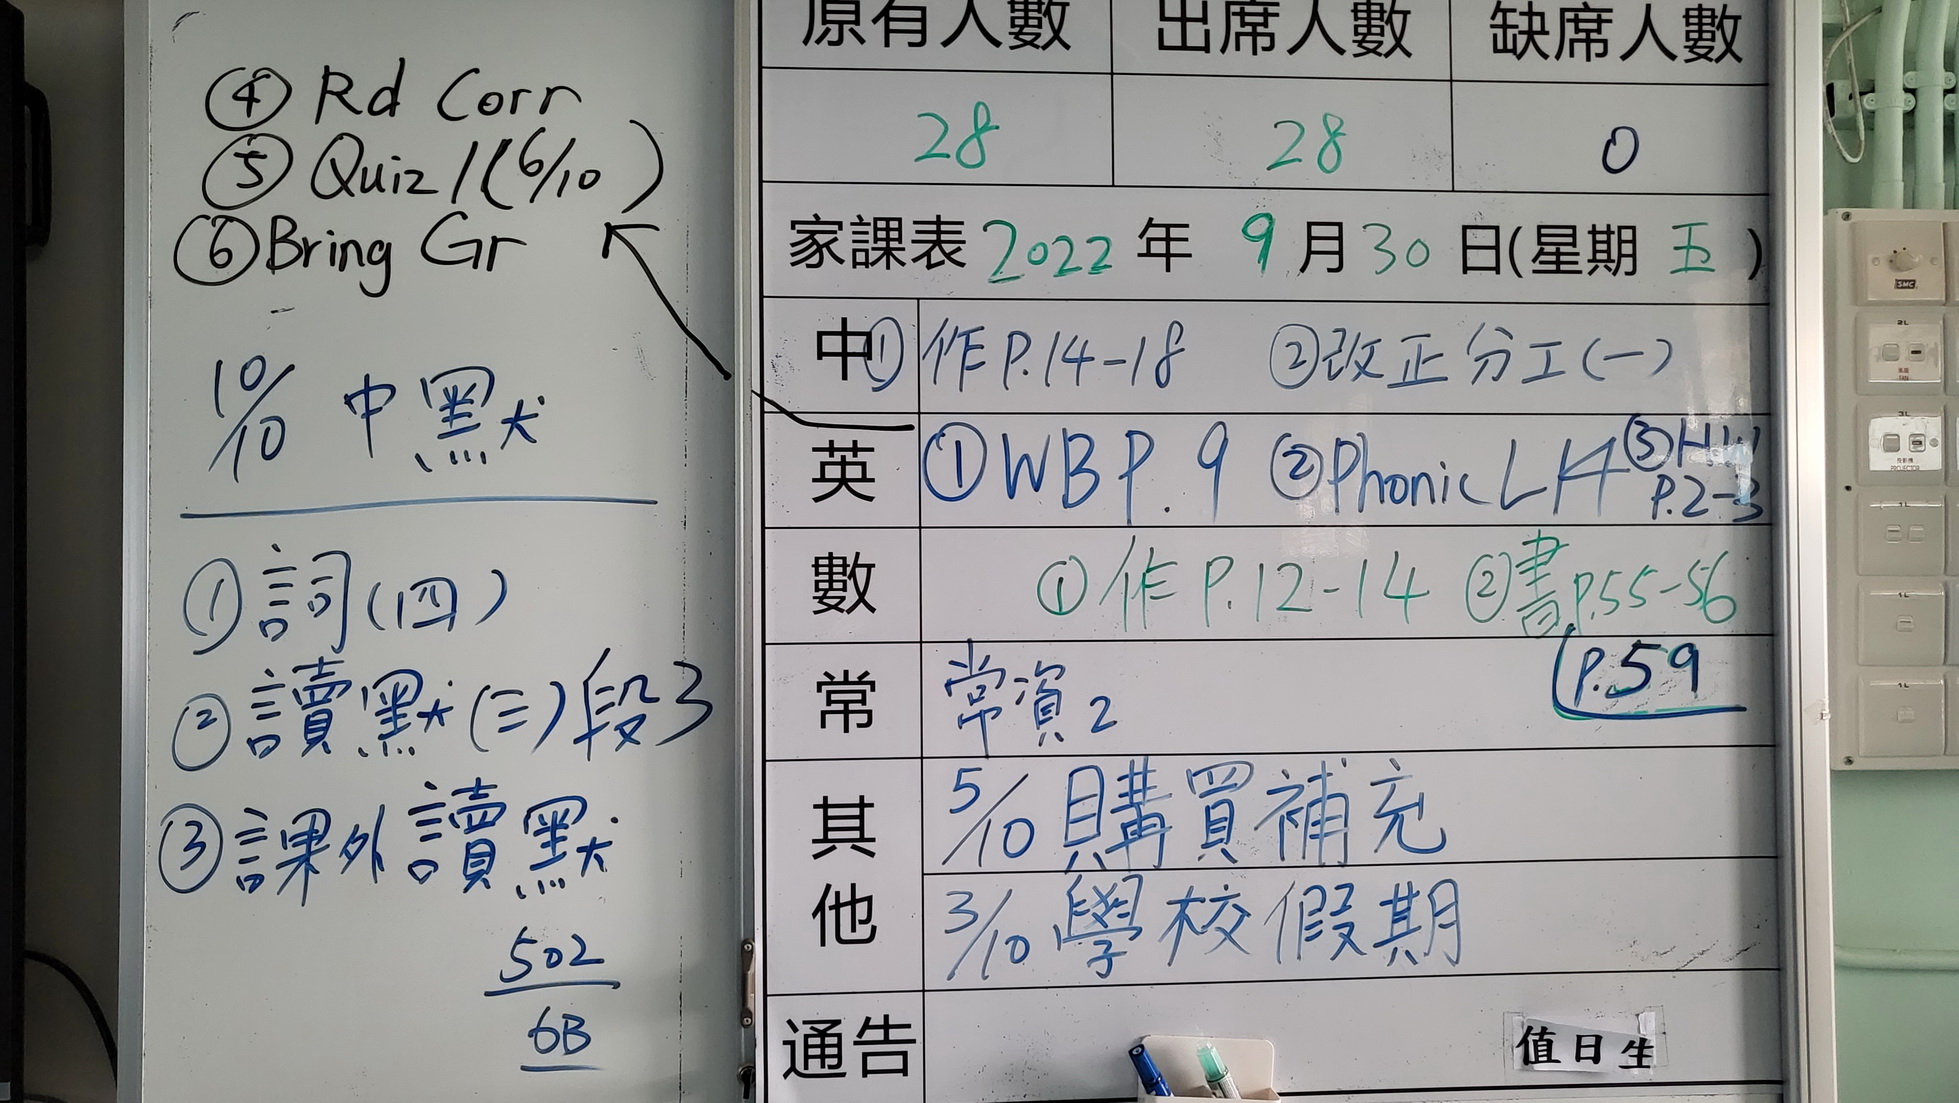 ④ Rd Corr
⑤ Quiz 1(6/10)
⑥ Bring Gr
10/10 中默
① 詞(四)
② 讀默(三)段3
③ 課外讀默
502
6B
原有人數 出席人數 缺席人數
28 28 0
家課表 2022 年 9 月 30 日(星期 五)
中 ① 作 P.14-18 ② 改正分工(一)
英 ① WB P.9 ② Phonic LH ③ HW P.2-3
數 ① 作 P.12-14 ② 書 P.55-56
P.59
常 常資2
其他 5/10 購買補充
3/10 學校假期
通告
值日生
SMC
PROJECTOR